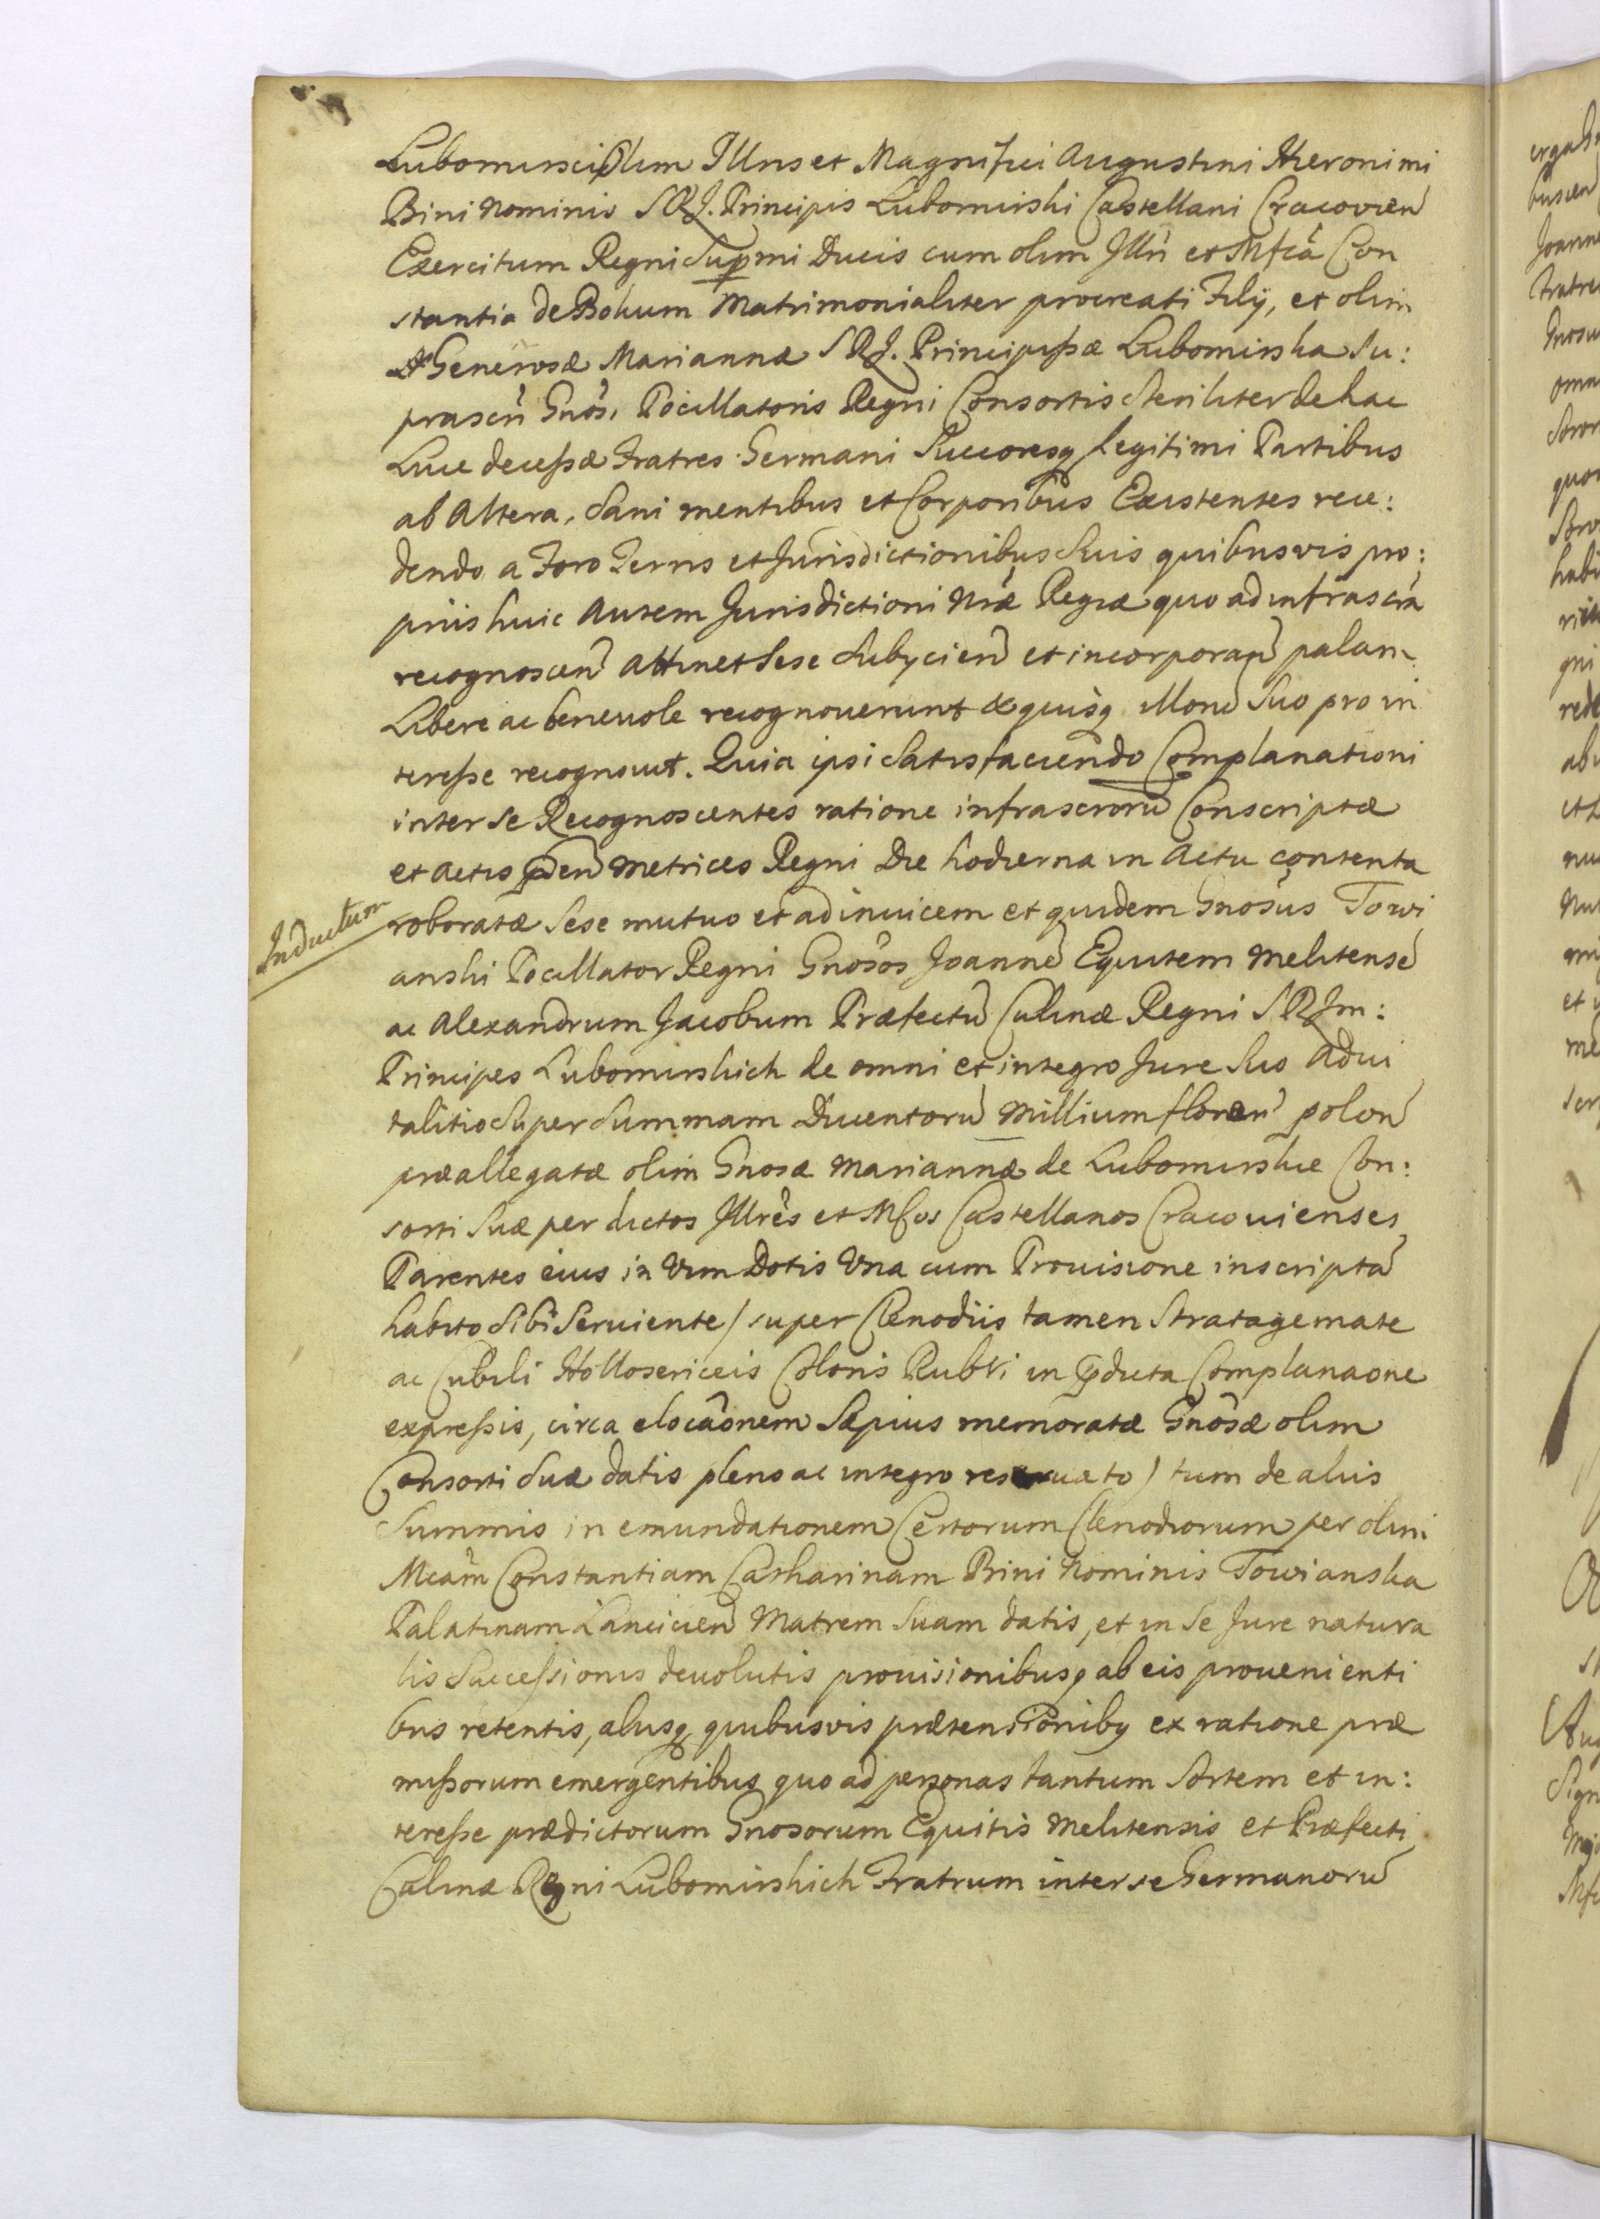 Lubomirsci Olim Illris et Magnifici Augustini Hieronimi
Bini Nominis S R J. Principis Lubomirski Castellani Cracovien
Exercituum Regni Supmi Ducis cum olim Jllri et Mfca Con
stantia de Bokum Matrimonialiter procreati Filij, et olim
Generosæ Mariannæ S R J. Principissæ Lubomirska Su:
prascri Gnosi Pocillatoris Regni Consortis steriliter de hac
Luce decessæ Fratres Germani Succoresq legitimi Partibus
ab Altera, Sani mentibus et Corporibus Existentes rece:
dendo a Foro Terris et Jurisdictionibus Suis quibusvis pro:
priis huic Autem Jurisdictioni Nræ Regiæ quo ad infrascra
recognoscen Attinet Sese Subycien et incorporan palam
Libere ac benevole recognoverunt & quisq illoru Suo pro in
teresse recognovit. Quia ipsi Satisfaciendo Complanationi
inter Se Recognoscentes ratione infrascroru Conscriptæ
et Actis pden Metrices Regni Die hodierna in Actu contenta
Inductum
roboratæ Sese mutuo et ad invicem et quidem Gnosus Towi
anski Pocillator Regni Gnosos Joanne Equitem Melitense
ac Alexandrum Jacobum Præfectu Culinæ Regni S R Jm:
Principes Lubomirskich de omni et integro Jure Suo Advi
talitio Super Summam Ducentoru Millium floren polon
præallegatæ olim Gnosæ Mariannæ de Lubomirskie Con:
sorti Suæ per dictos Jllres et Mfcos Castellanos Cracovienses
Parentes eius in Vim Dotis Una cum Provisione inscripta
habito Sibi Serviente / super Clenodiis tamen Stratagemate
ac Cubili Hollosericeis Coloris Rubri in pducta Complanaone
expressis, circa elocaonem Sæpius memoratæ Gnosæ olim
Consorti Suæ datis pleno ac integro reservato / tum de aliis
Summis in emundationem Certorum Clenodiorum per olim
Mcam Constantiam Catharinam Brini Nominis Towianska
Palatinam Lancicien Matrem Suam datis, et in Se Jure natura
lis Successionis devolutis provisionibusq ab eis provenienti
bus retentis, aliisq quibusvis prætensionibq ex ratione præ
missorum emergentibus quo ad personas tantum Sortem et in:
teresse prædictorum Gnosorum Equitis Melitensis et Præfecti
Culinæ Regni Lubomirskich Fratrum inter se Germanoru